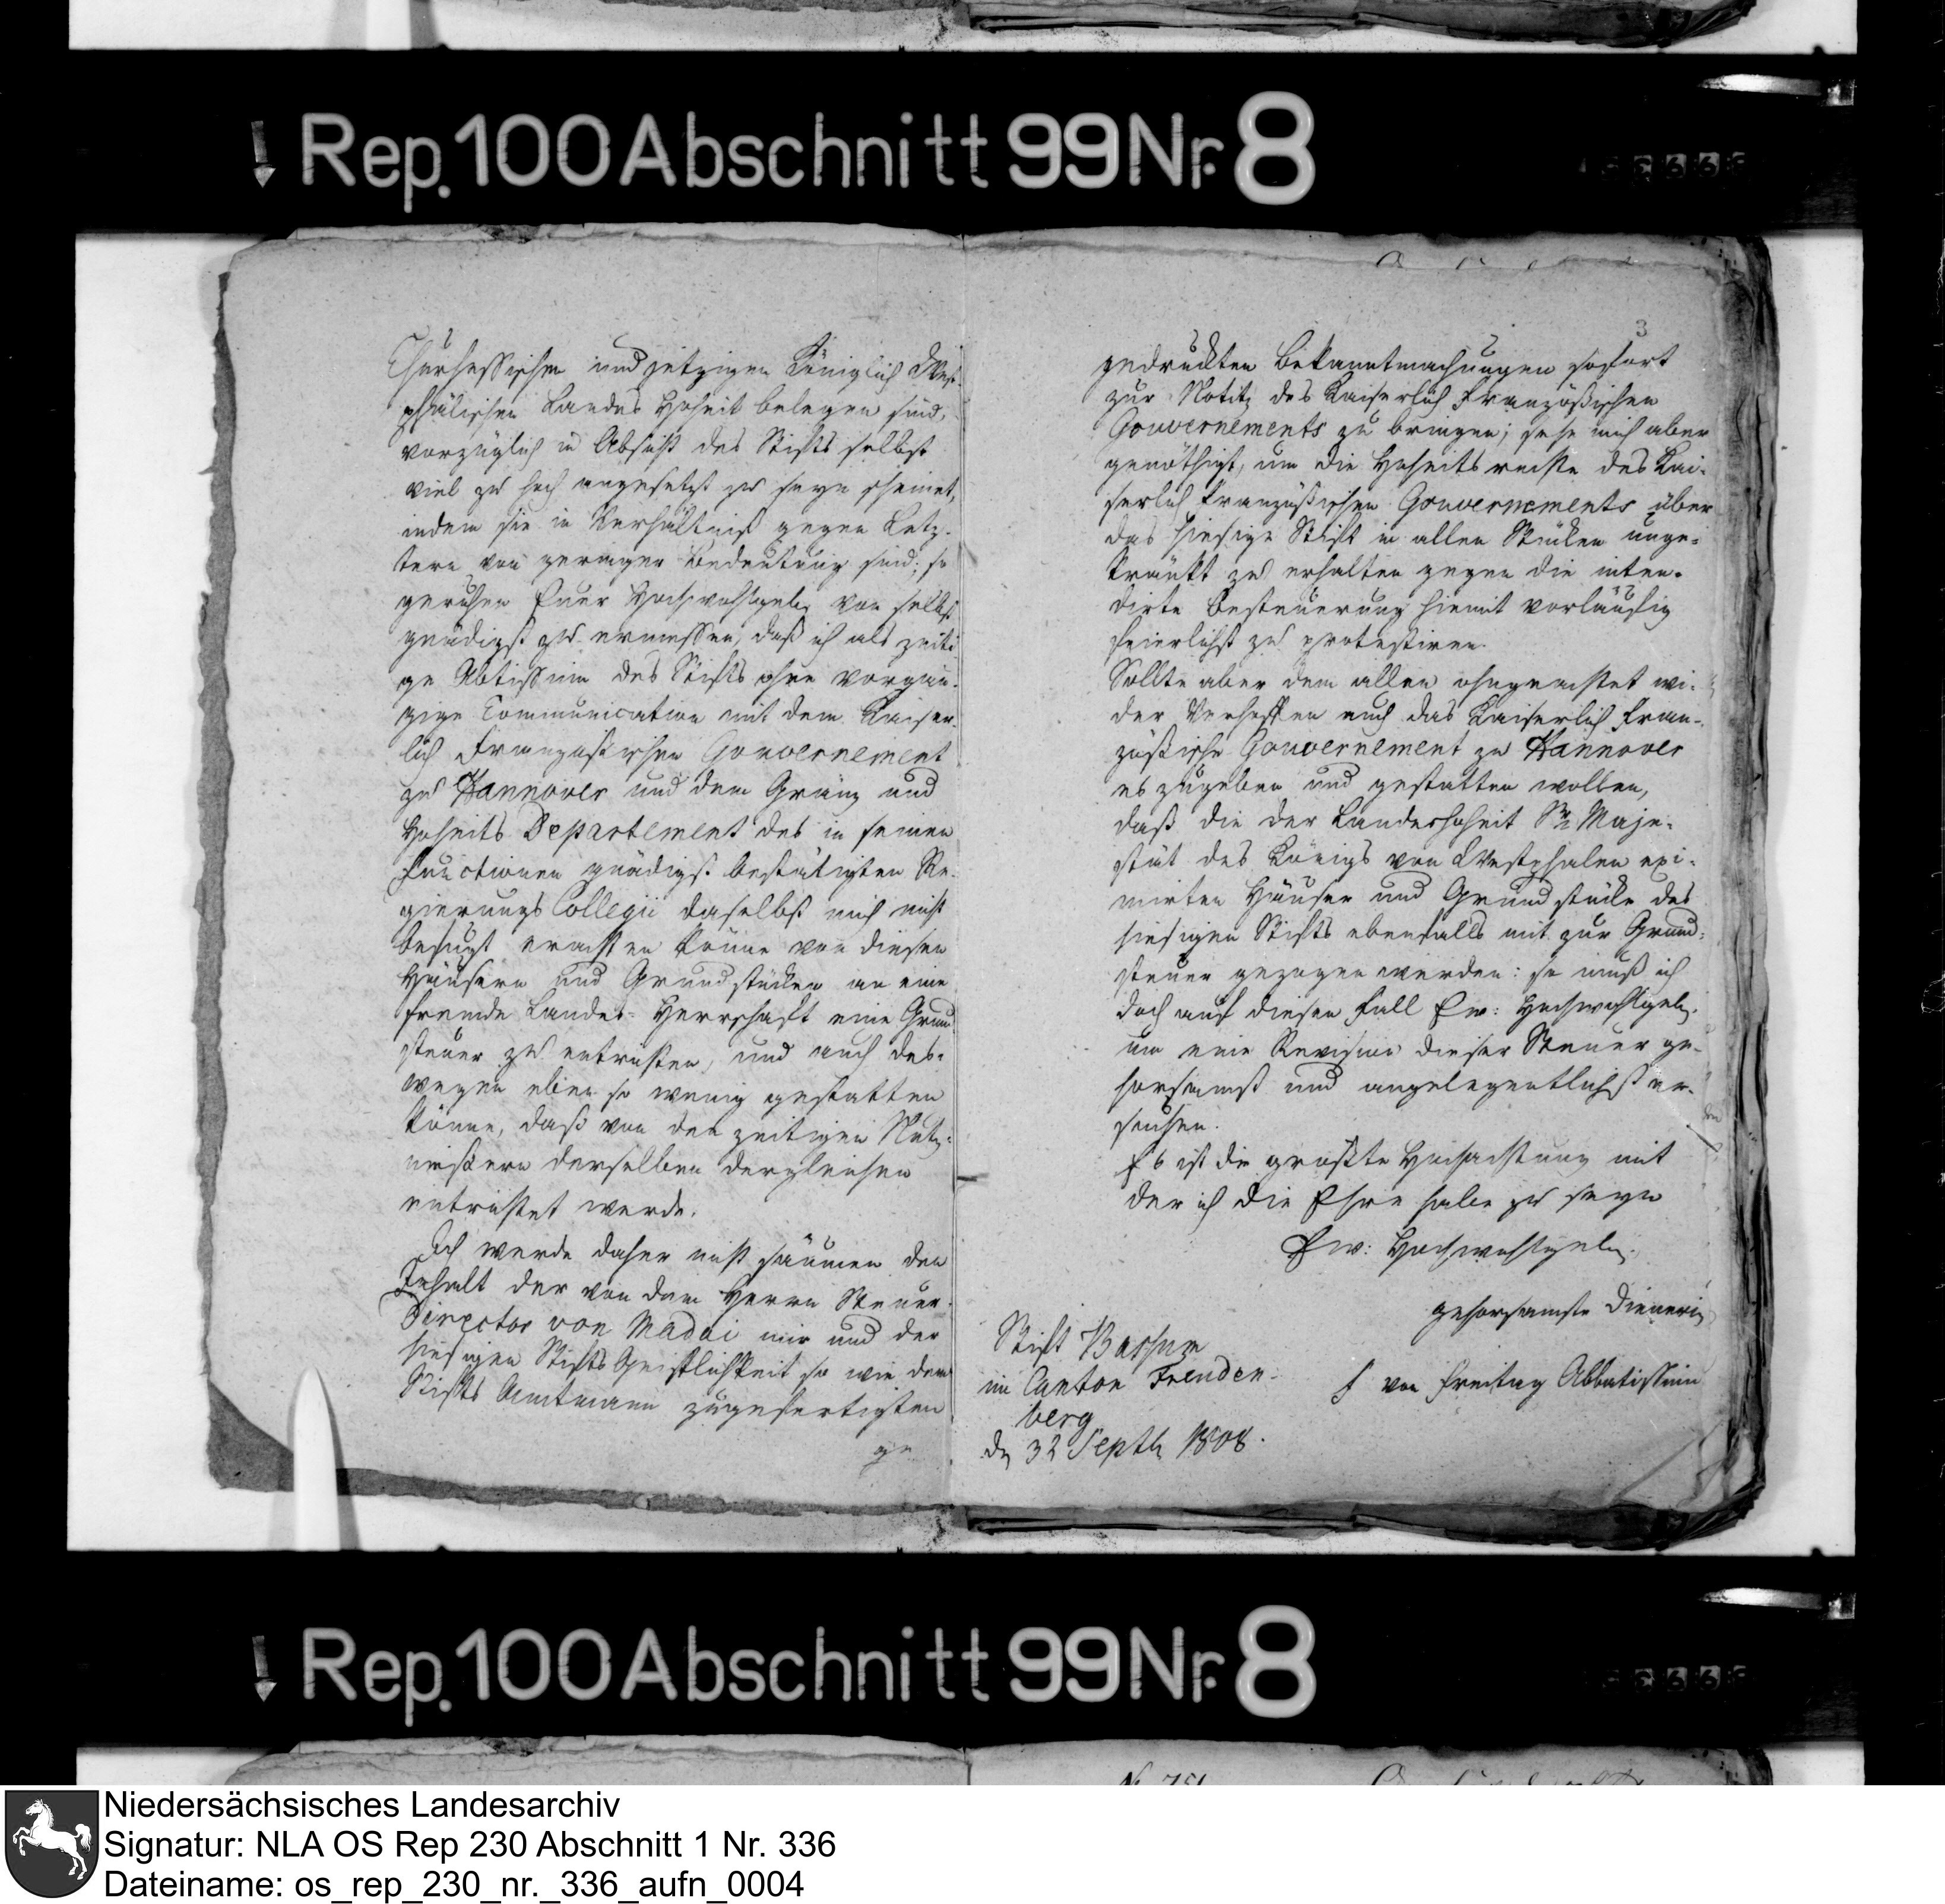 Rep. 100 Abschnitt 99 Nr. 8
Churhessischen und jetzigen Königlich West-
phälischen Landes Hoheit belegen sind,
vorzüglich in Absicht des Stifts selbst
viel zu hoch angesetzt zu seyn scheinet,
indem sie in Verhältniß gegen Letz-
tern von geringer Bedeutung sind; so
geruhen Euer Hochwohlgeb. von selbst
gnädigst zu ermessen, daß ich als zeiti
ge Abtissinn des Stifts ohne vorgän-
gige Communication mit dem Kaiser-
lich Französischen Gouvernement
zu Hannover und dem Gränz und
Hoheits Departement des in seinen
Functionen gnädigst bestätigten Re-
gierungs Collegii daselbst mich nicht
befugt erachten könne von diesen
Häusern und Grundstücken an eine
fremde Landes-Herrschaft eine Grund
steuer zu entrichten, und auch des-
wegen eben so wenig gestatten
könne, daß von den zeitigen Nutz-
nießern derselben dergleichen
entrichtet werde.
Ich werde daher nicht säumen den
Inhalt der von dem Herrn Steuer-
Director von Madai mir und der
hiesigen Stifts Geistlichkeit so wie dem
Stifts Amtmann zugefertigten
ge
3
gedruckten Bekanntmachungen sofort
zur Notitz des Kaiserlich Französischen
Gouvernements zu bringen; sehe mich aber
genöthigt, um die Hoheitsrechte des Kai-
serlich Französischen Gouvernements über
das hiesige Stift in allen Stücken unge-
kränkt zu erhalten gegen die inten-
dirte Besteuerung hiemit vorläufig
feierlichst zu protestiren.
Sollte aber dem allen ohngeachtet wi-
der Verhoffen auch das Kaiserlich Fran-
zösische Gouvernement zu Hannover
es zugeben und gestatten wollen,
daß die der Landeshoheit Sr Maje-
stät des Königs von Westphalen exi-
mirten Häuser und Grundstücke des
hiesigen Stifts ebenfalls mit zur Grund-
steuer gezogen werden: so muß ich
doch auf diesen Fall Ew: Hochwohlgeb.
um eine Revision dieser Steuer ge-
horsamst und angelegentlichst er-
suchen.
Es ist die größte Hochachtung mit
der ich die Ehre habe zu seyn
Ew: Hochwohlgeb.
gehorsamste Dienerin
von Freitag Abbatissinn
Stift Bassum
im Canton Freuden-
berg
Septb 1808.
Rep. 100 Abschnitt 99 Nr. 8
Niedersächsisches Landesarchiv
Signatur: NLA OS Rep 230 Abschnitt 1 Nr. 336
Dateiname: os_rep_230_nr._336_aufn_0004